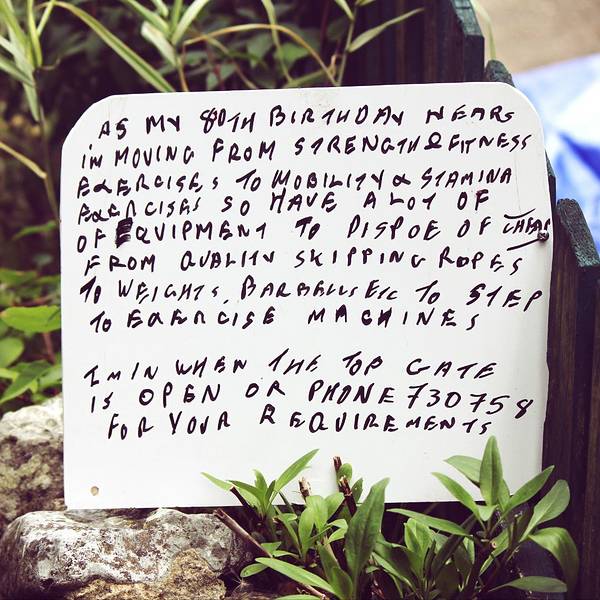 AS MY 80TH BIRTHDAY NEARS
iM MOVING FROM STRENGTH & FITNESS
EXERCISES TO MOBILITY & STAMINA
EXERCISES SO HAVE A LOT OF
OF EQUIPMENT TO DISPOE OF CHEAP
FROM QUALITY SKIPPING ROPES
TO WEIGHTS, BARBELLS ETC TO STEP
TO EXERCISE MACHINES
IM IN WHEN THE TOP GATE
IS OPEN OR PHONE 730758
FOR YOUR REQUIREMENTS